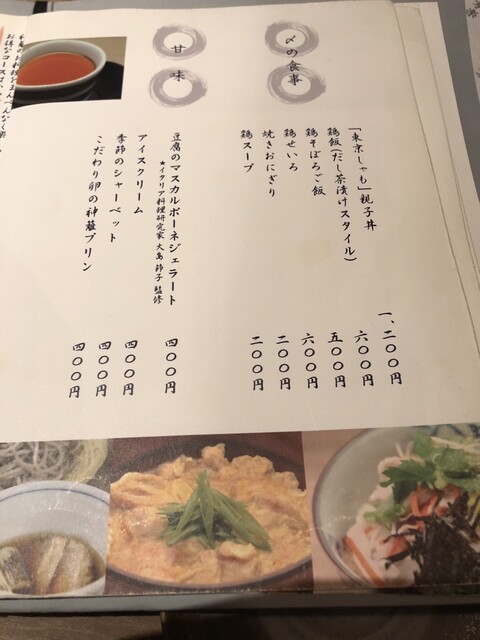 〆の食事
「東京しゃも」親子丼
一、二〇〇円
鶏飯(だし茶漬けスタイル)
六〇〇円
鶏そぼろご飯
五〇〇円
鶏せいろ
六〇〇円
焼きおにぎり
二〇〇円
鶏スープ
二〇〇円
甘味
豆腐のマスカルポーネジェラート
四〇〇円
★イタリア料理研究家 大島節子 監修
アイスクリーム
四〇〇円
季節のシャーベット
四〇〇円
こだわり卵の神蘊プリン
四〇〇円